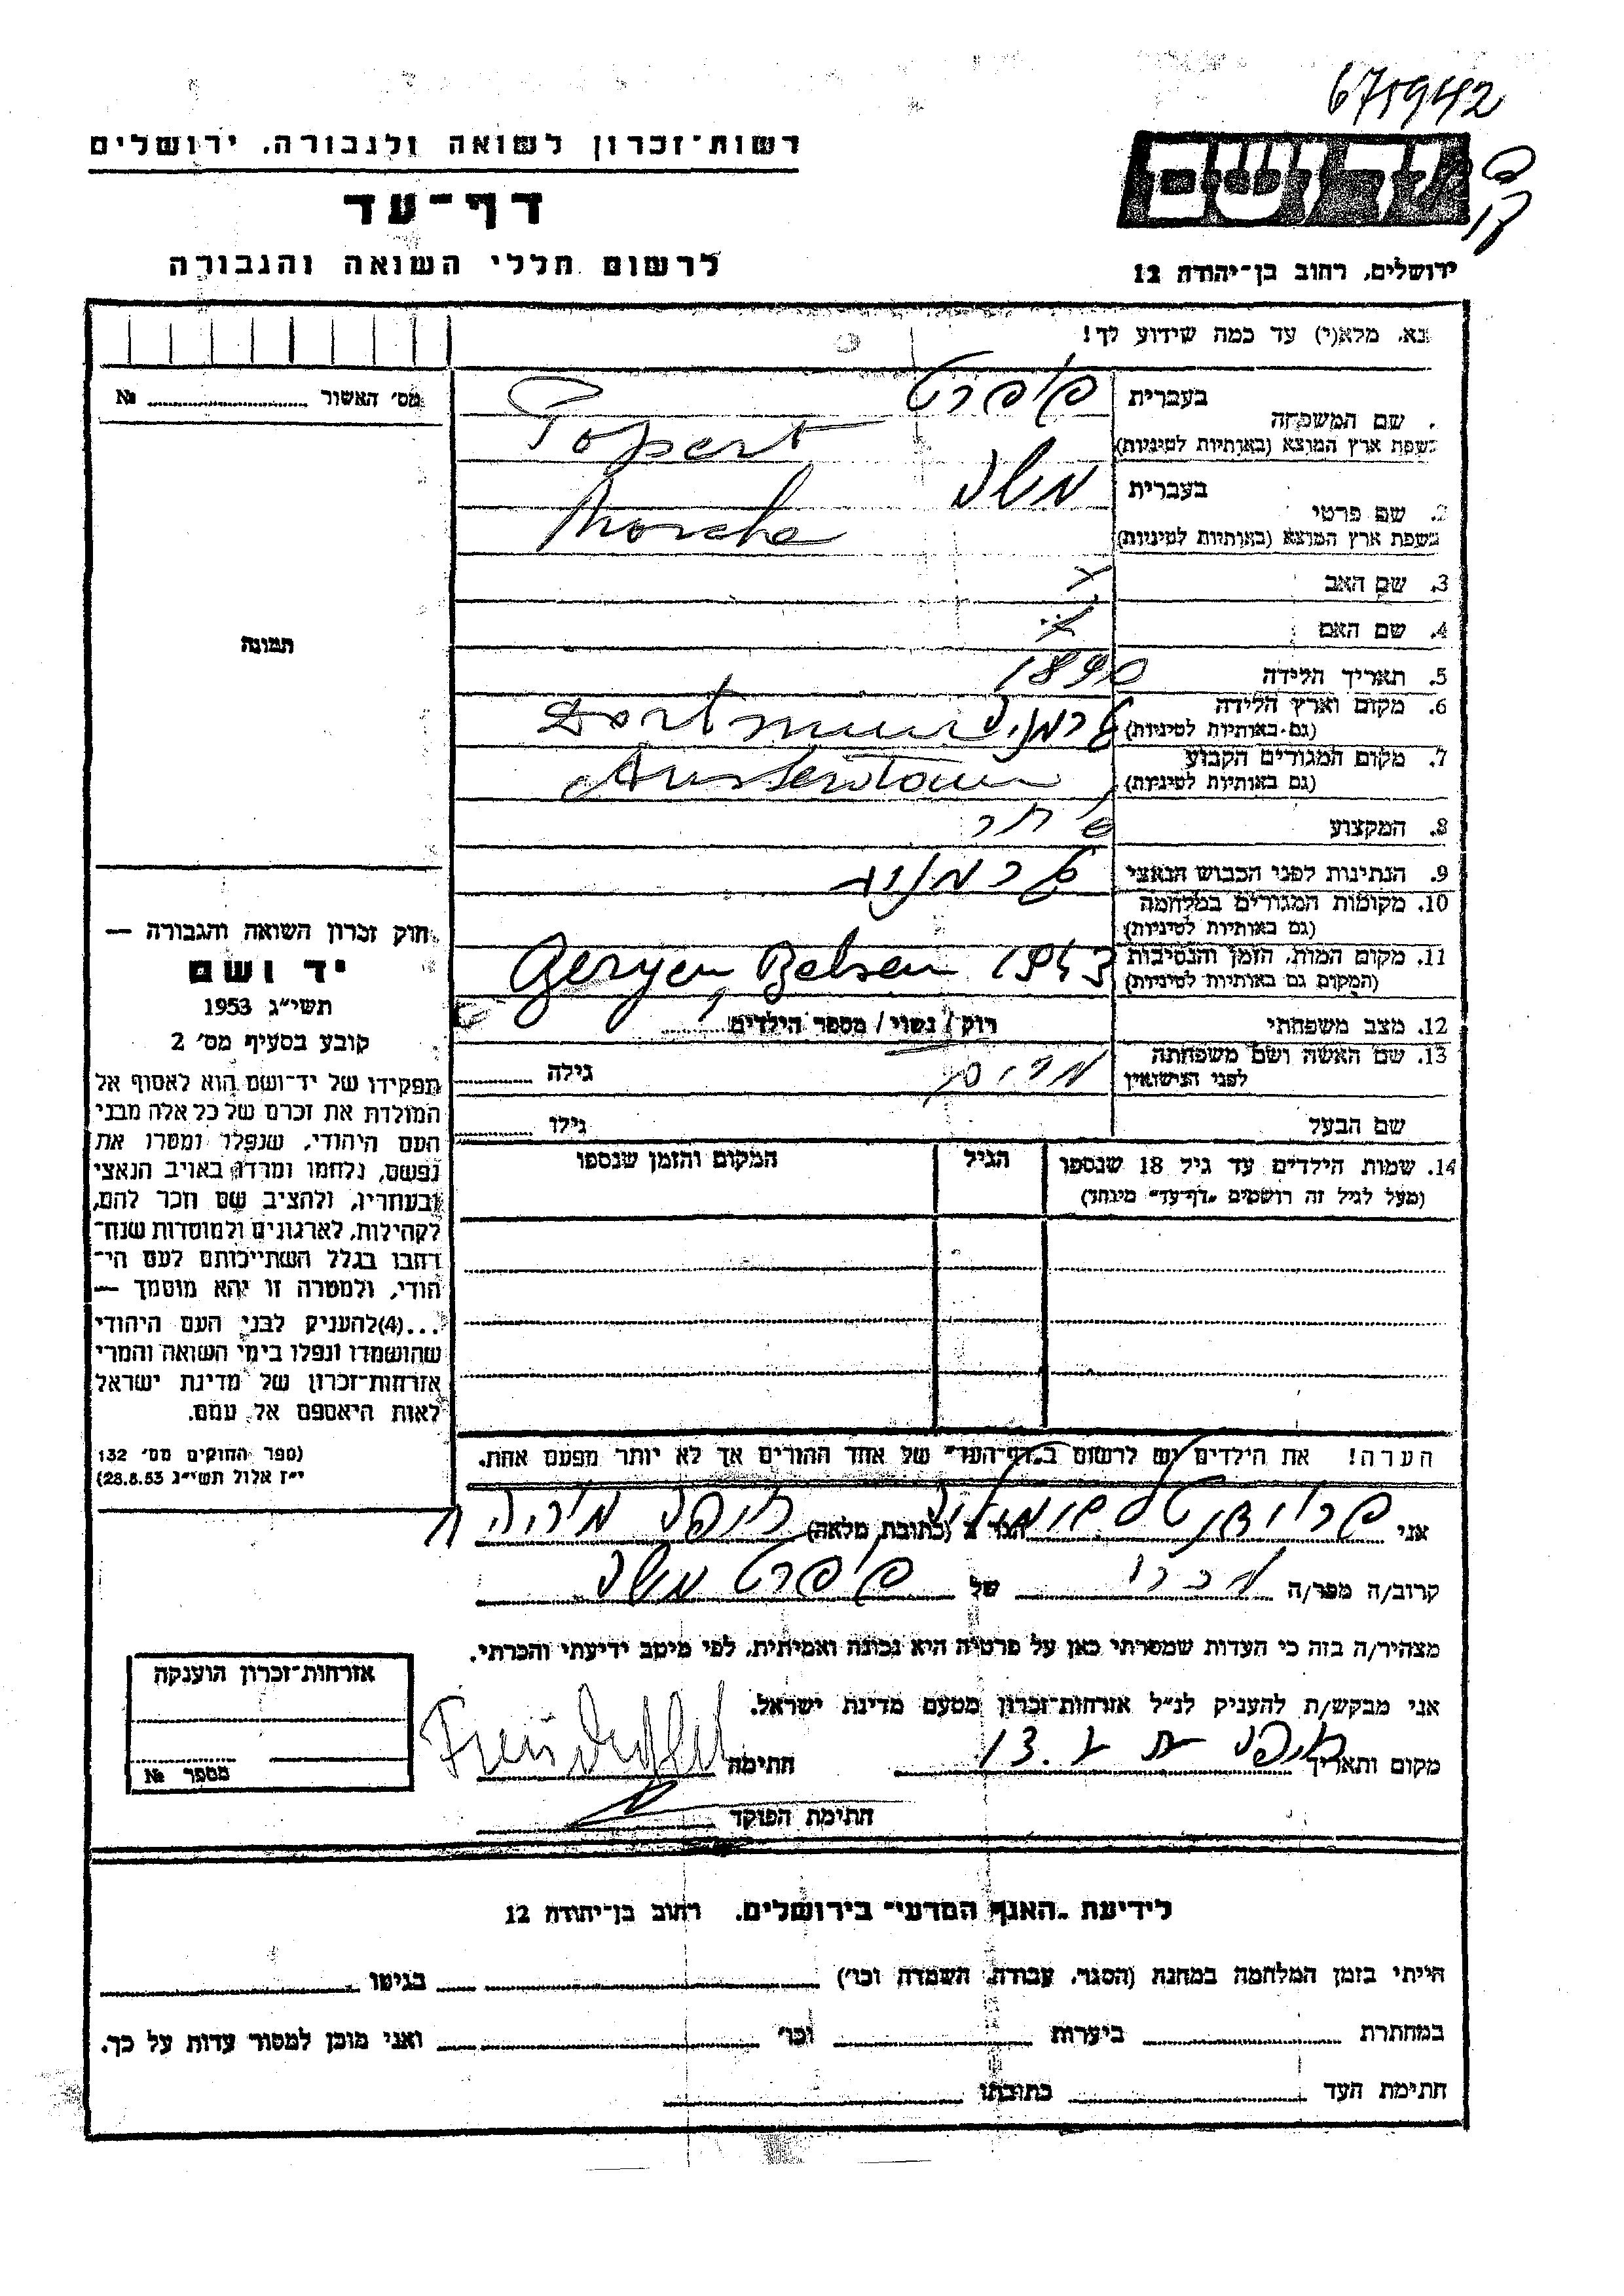 675942
רשות־זכרון לשואה ולגבורה. ירושלים
דף־עד
לרשום חללי השואה והגבורה
יד ושם
ירושלים, רחוב בן־יהודה 12
נא, מלא(י) עד כמה שידוע לך!
מס' האשור № 
תמונה
חוק זכרון השואה והגבורה —
יד ושם
תשי״ג 1953
קובע בסעיף מס' 2
תפקידו של יד־ושם הוא לאסוף אל
המולדת את זכרם של כל אלה מבני
העם היהודי, שנפלו ומסרו את
נפשם, נלחמו ומרדו באויב הנאצי
ובעוזריו, ולהציב שם וזכר להם,
לקהילות, לארגונים ולמוסדות שנח־
רחבו בגלל השתייכותם לעם הי־
הודי, ולמטרה זו יהא מוסמך —
...(4)להעניק לבני העם היהודי
שהושמדו ונפלו בימי השואה והמרי
אזרחות־זכרון של מדינת ישראל
לאות היאספם אל עמם.
(ספר החוקים מס' 132
י״ז אלול תשי״ג 28.8.53)
שם המשפחה
בעברית פופרט
בשפת ארץ המוצא (באותיות לטיניות) Popert
2. שם פרטי
בעברית משה
בשפת ארץ המוצא (באותיות לטיניות) Morche
3. שם האב
4. שם האם
5. תאריך הלידה 1890
6. מקום וארץ הלידה
(גם באותיות לטיניות) גרמניה Dortmund
7. מקום המגורים הקבוע
(גם באותיות לטיניות) Amsterdam
8. המקצוע סוחר
9. הנתינות לפני הכבוש הנאצי גרמנית
10. מקומות המגורים במלחמה
(גם באותיות לטיניות)
11. מקום המות, הזמן והנסיבות
(המקום גם באותיות לטיניות) Bergen Belsen 1943
12. מצב משפחתי רווק / נשוי / מספר הילדים
13. שם האשה ושם משפחתה
לפני הנישואין גילה
שם הבעל גילו
14. שמות הילדים עד גיל 18 שנספו הגיל המקום והזמן שנספו
(מעל לגיל זה רושמים „דף־עד״ מיוחד)
הערה! את הילדים יש לרשום ב„דף־העד״ של אחד ההורים אך לא יותר מפעם אחת.
אני הגר ב (כתובת מלאה) חיפה
קרוב/ה מכר/ה מכרו של פופרט משה
מצהיר/ה בזה כי העדות שמסרתי כאן על פרטיה היא נכונה ואמיתית, לפי מיטב ידיעתי והכרתי.
אני מבקש/ת להעניק לנ״ל אזרחות־זכרון מטעם מדינת ישראל.
מקום ותאריך חיפה חתימה
חתימת הפוקד
אזרחות־זכרון הוענקה
מספר №
לידיעת „האגף המדעי״ בירושלים. רחוב בן־יהודה 12
הייתי בזמן המלחמה במחנה (הסגר, עבודה, השמדה וכו') בגיטו
במחתרת ביערות וכו' ואני מוכן למסור עדות על כך.
חתימת העד כתובתו